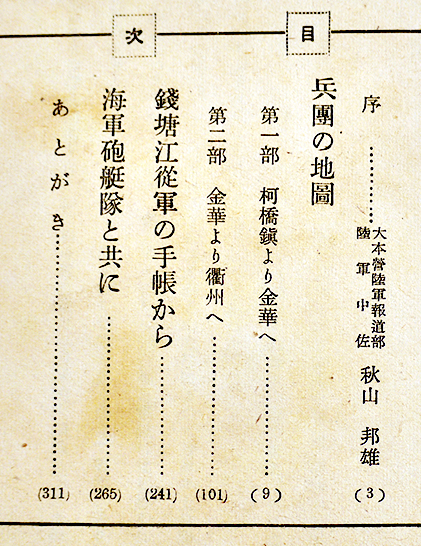 目次
序 …………… 大本營陸軍報道部 陸軍中佐 秋山邦雄 (3)
兵團の地圖
第一部 柯橋鎭より金華へ …………… (9)
第二部 金華より衢州へ …………… (101)
錢塘江從軍の手帳から …………… (241)
海軍砲艇隊と共に …………… (265)
あとがき …………… (311)